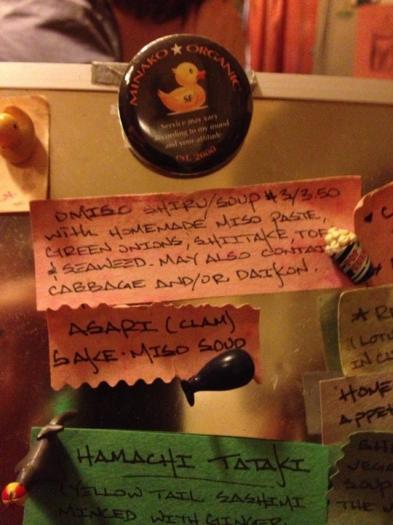 MINAKO★ORGANIC
SF
Service may vary
according to my mood
and your attitude
EST. 2000
OMISO SHIRU/SOUP $3/3.50
WITH HOMEMADE MISO PASTE,
GREEN ONIONS, SHIITAKE, TOF
& SEAWEED. MAY ALSO CONTAI
CABBAGE AND/OR DAIKON.
ASARI (CLAM)
SAKE-MISO SOUP
HAMACHI TATAKI
(YELLOW TAIL SASHIMI
MINCED WITH GINGER
IN CL
HOME
APPET
VEGA
SOUP
THE